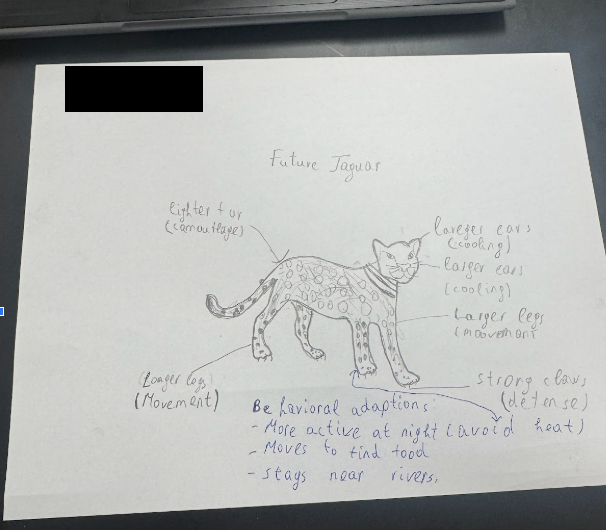 Future Jaguar
lighter fur
(camouflage)
lareger ears
(cooling)
larger ears
(cooling)
Larger legs
(moovement
Longer legs
(Movement)
strong claws
(defense)
Behavioral adaptions
- More active at night (avoid heat)
- Moves to find food
- stays near rivers.